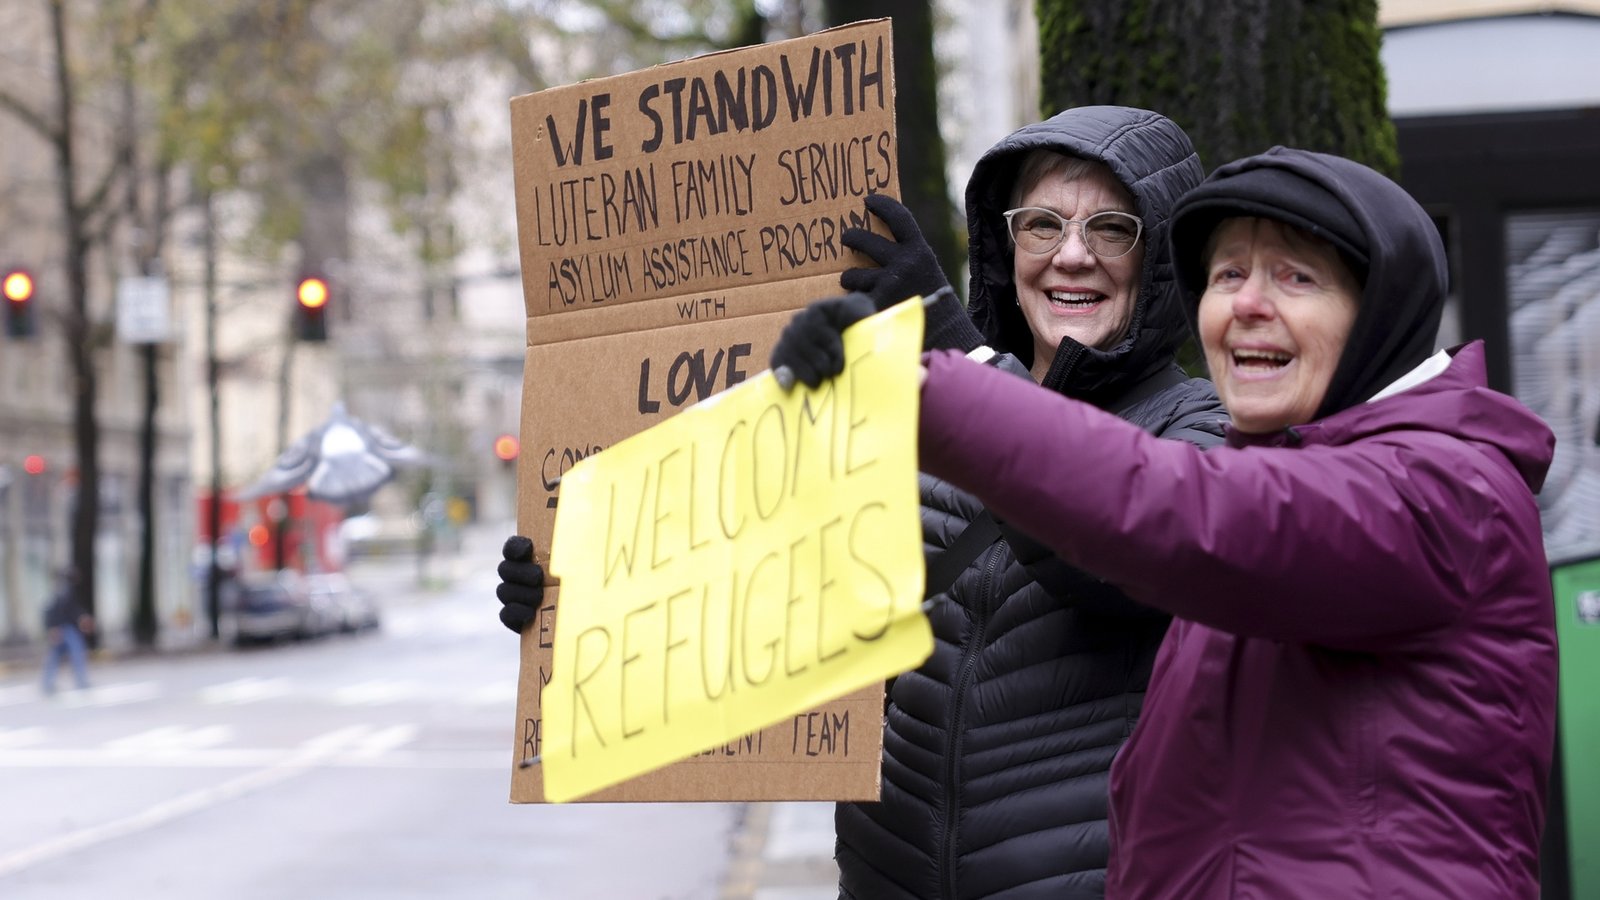 WE STAND WITH
LUTERAN FAMILY SERVICES
ASYLUM ASSISTANCE PROGRAM
WITH
LOVE
TEAM
WELCOME
REFUGEES